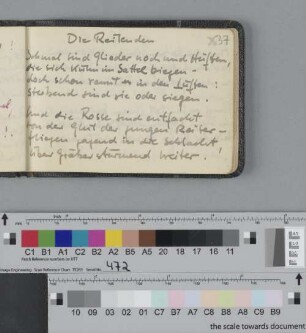 Die Reitenden
8637
Schmal sind Glieder noch und Hüften,
die sich kühn im Sattel biegen -
doch schon rauscht es in den Lüften:
sterbend sind sie oder siegen.
Und die Rosse sind entfacht
von der Glut der jungen Reiter -
fliegen jagend in die Schlacht
über Gräber stürmend weiter!
C1 B1 A1 C2 B2 A2 B5 A5 20 18 17 16 11
472
10 09 03 02 01 C7 B7 A7 C8 B8 A8 C9 B9
the scale towards document